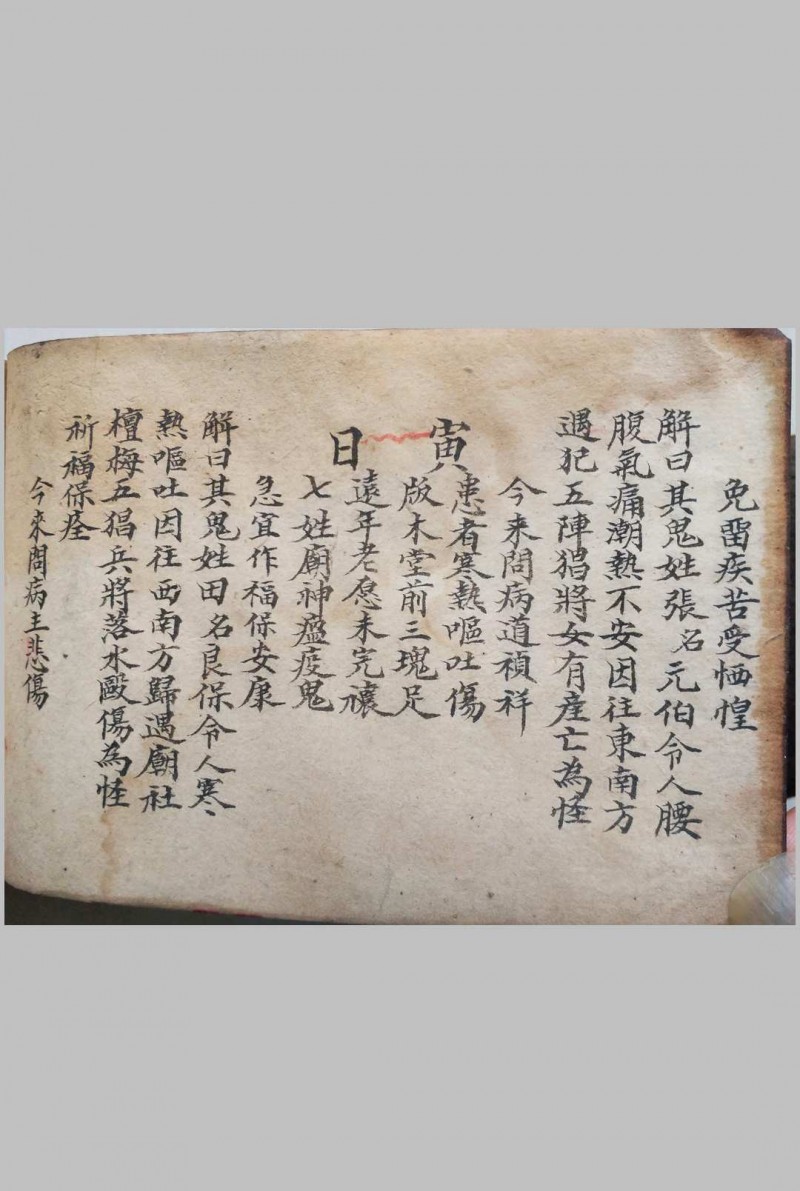 免留疾苦受恓惶
解曰其鬼姓張名元伯令人腰
腹氣痛潮熱不安因往東南方
遇犯五陣猖將女有産亡為怪
今來問病道禎祥
寅日
患者寒熱嘔吐傷
版木堂前三塊足
遠年老愿未完禳
七姓廟神瘟疫鬼
急宜作福保安康
解曰其鬼姓田名良保令人寒
熱嘔吐因往西南方歸遇廟社
檀梅五猖兵將落水毆傷為怪
祈福保痊
今來問病主悲傷